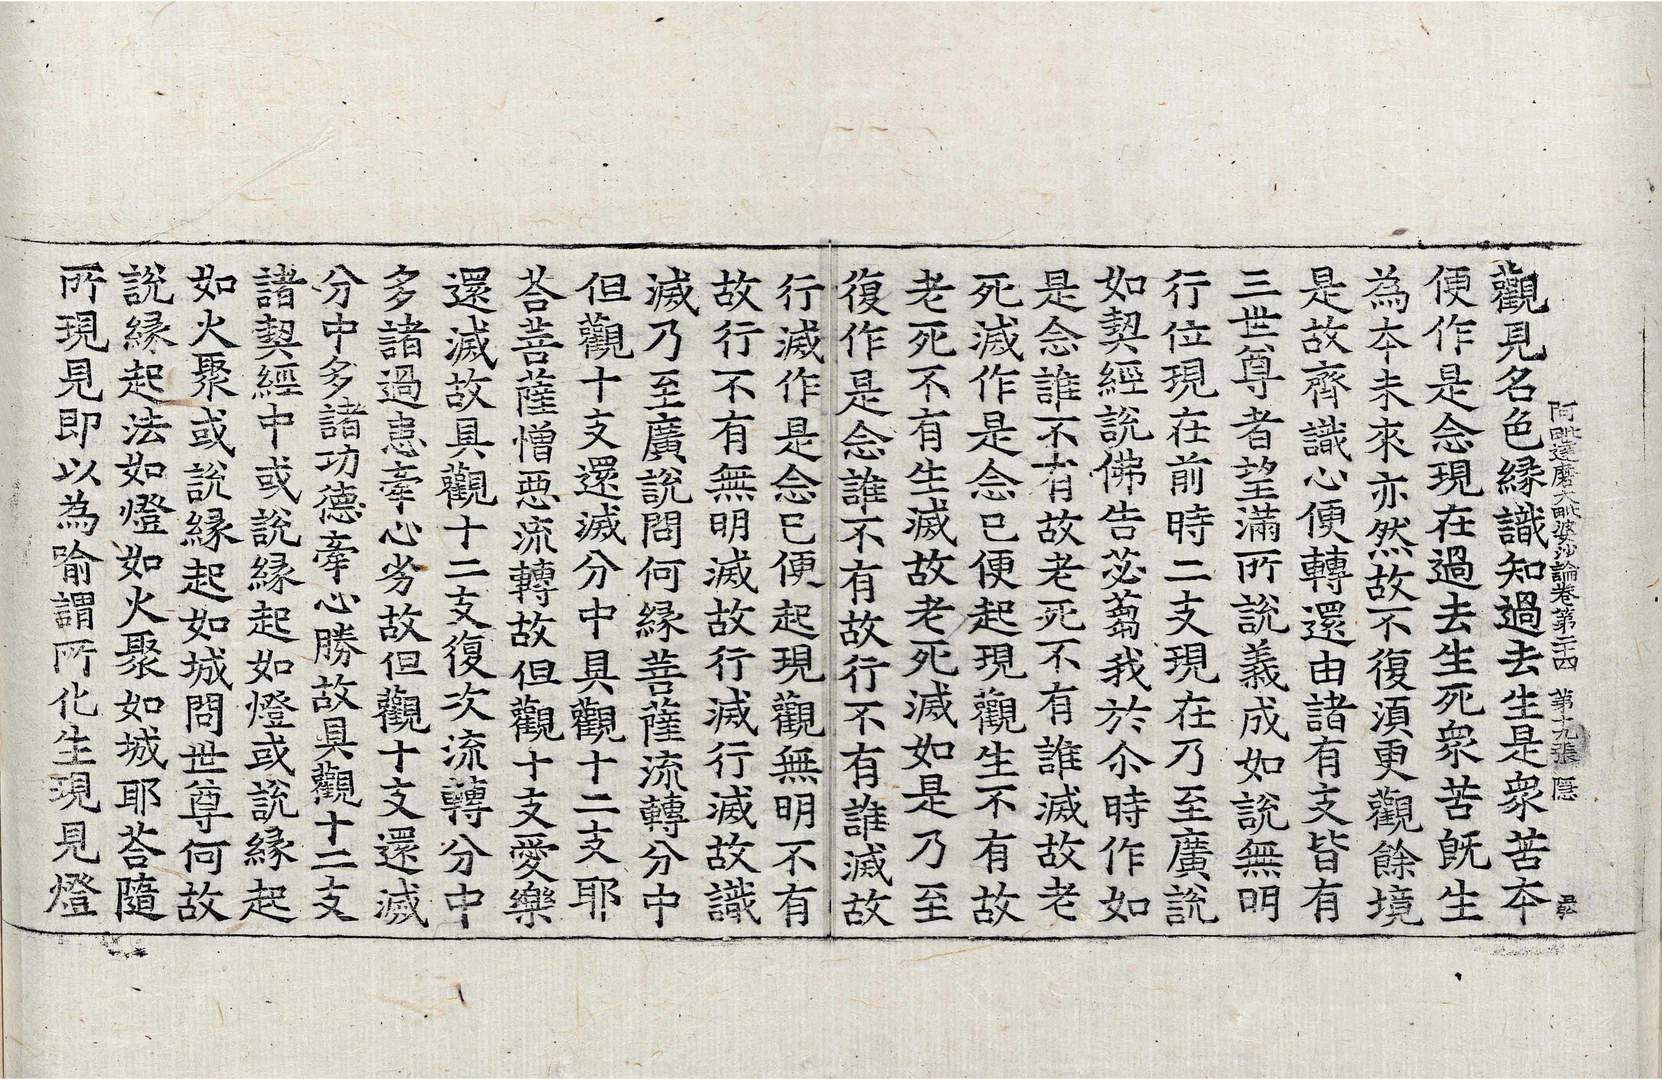 阿毗達磨大毗婆沙論卷第二十四 第九張 隱
觀見名色緣識知過去生是衆苦本
便作是念現在過去生死衆苦旣生
為本未來亦然故不復湏更觀餘境
是故齊識心便轉還由諸有支皆有
三世尊者望滿所說義成如說無明
行位現在前時二支現在乃至廣說
如契經說佛告苾蒭我於尒時作如
是念誰不有故老死不有誰滅故老
死滅作是念已便起現觀生不有故
老死不有生滅故老死滅如是乃至
復作是念誰不有故行不有誰滅故
行滅作是念已便起現觀無明不有
故行不有無明滅故行滅行滅故識
滅乃至廣說問何緣菩薩流轉分中
但觀十支還滅分中具觀十二支耶
荅菩薩憎惡流轉故但觀十支愛樂
還滅故具觀十二支復次流轉分中
多諸過患牽心劣故但觀十支還滅
分中多諸功德牽心勝故具觀十二支
諸契經中或說緣起如燈或說緣起
如火聚或說緣起如城問世尊何故
說緣起法如燈如火聚如城耶荅隨
所現見即以為喻謂所化生現見燈